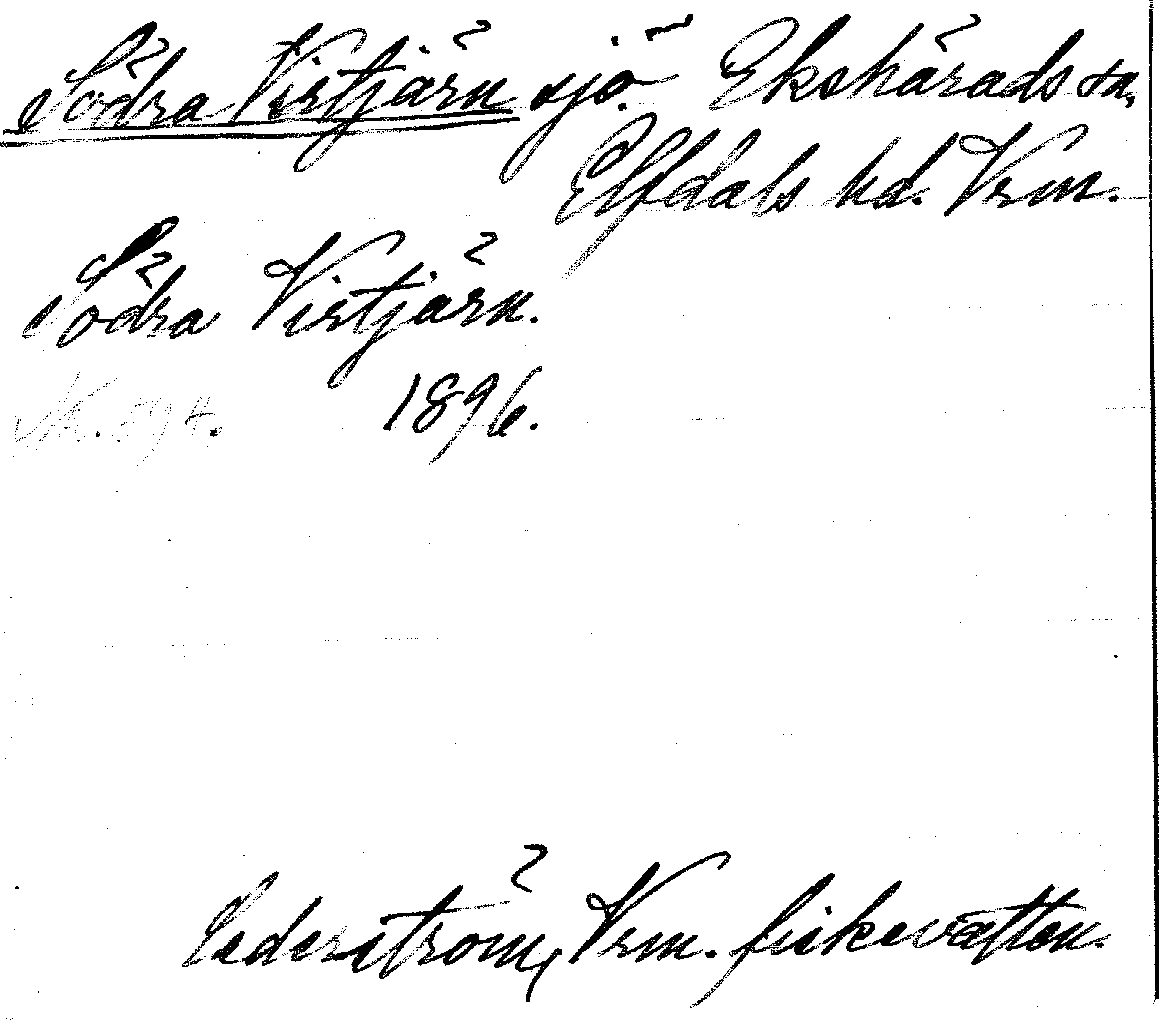 Södra Virtjärn sjö Ekshärads sn,
Elfdals hd. Vrm.
Södra Virtjärn.
1896.
Cederström, Vrm. fiskevatten.